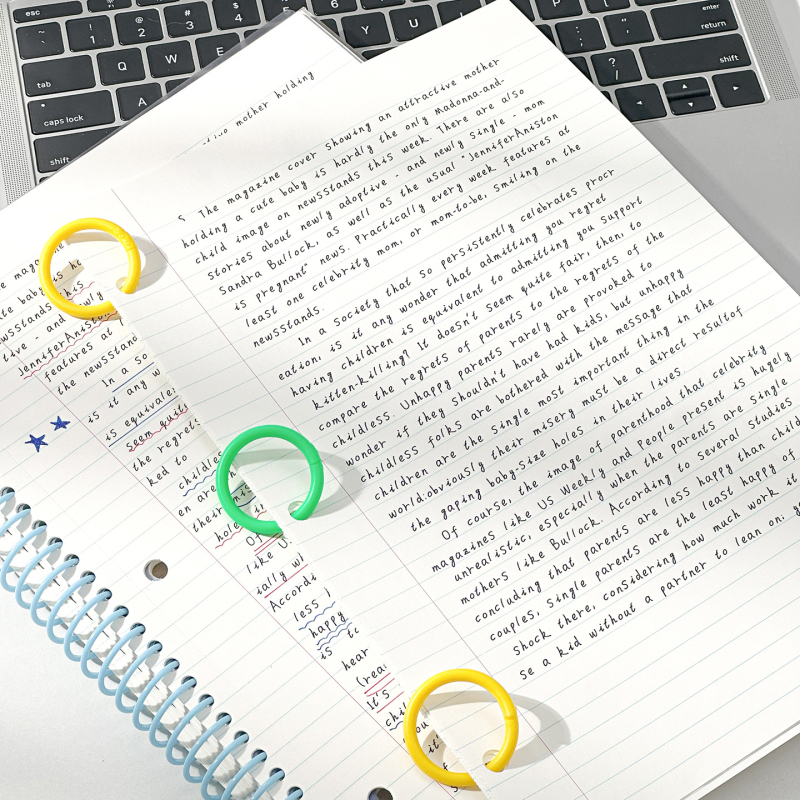 esc
~
`
!
1
@
2
#
3
$
4
tab
Q
W
E
Y
U
caps lock
A
shift
?
enter
return
shift
mother holding
5 The magazine cover showing an attractive mother
holding a cute baby is hardly the only Madonna-and-
child image on newsstands this week. There are also
stories about newly adoptive - and newly single - mom
Sandra Bullock, as well as the usual "JenniferAniston
is pregnant" news. Practically every week features at
least one celebrity mom, or mom-to-be, smiling on the
newsstands.
In a society that so persistently celebrates procr
eation, is it any wonder that admitting you regret
having children is equivalent to admitting you support
kitten-killing? It doesn't seem quite fair, then, to
compare the regrets of parents to the regrets of the
childless. Unhappy parents rarely are provoked to
wonder if they shouldn't have had kids, but unhappy
childless folks are bothered with the message that
children are the single most important thing in the
world:obviously their misery must be a direct resultof
the gaping baby-size holes in their lives
Of course, the image of parenthood that celebrity
magazines like US Weekly and People present is hugely
unrealistic, especially when the parents are single
mothers like Bullock. According to several studies
concluding that parents are less happy than child
couples, single parents are the least happy of
shock there, considering how much work it
se a kid without a partner to lean on;
e magazine
te baby is
wsstands this
tive - and newly
JenniferAniston
features at
the newsstand
In a so
is it any w
is equivale
seem quit
the regrets
ked to
childles
en are
their mis
hole
Of
like U
ially wh
Accordi
less
happy
is
hear
(rea
It's
chil
you
it'